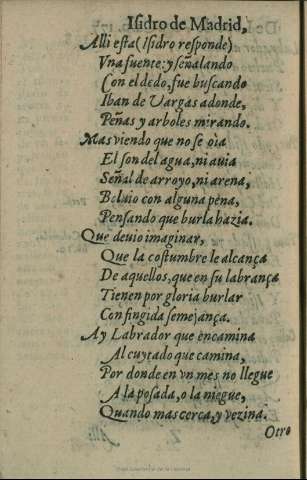 Isidro de Madrid,
Alli esta (Isidro responde)
Vna fuente: y señalando
Con el dedo, fue buscando
Iban de Vargas adonde,
Peñas y arboles mirando.
Mas viendo que no se oìa
El son del agua, ni auia
Señal de arroyo, ni arena,
Boluio con alguna pena,
Pensando que burla hazia.
Que deuio imaginar,
Que la costumbre le alcança
De aquellos, que en su labrança
Tienen por gloria burlar
Con fingida semejança.
Ay Labrador que encamina
Al cuytado que camina,
Por donde en vn mes no llegue
A la posada, o la niegue,
Quando mas cerca, y vezina.
Otro